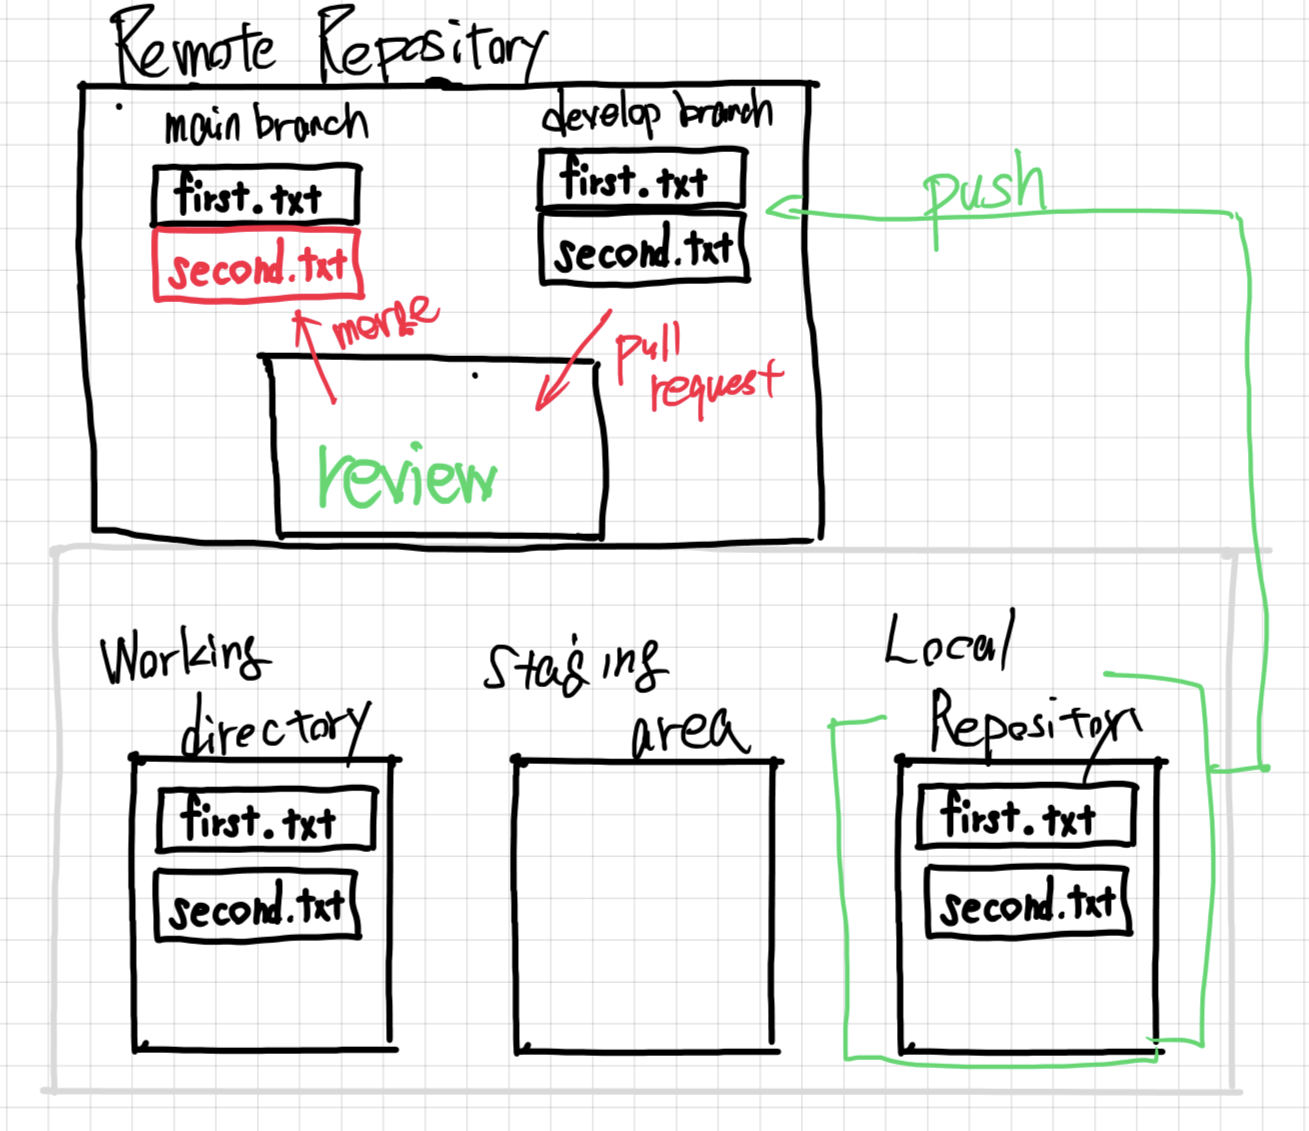 Remote Repository
main branch
first.txt
second.txt
develop branch
first.txt
second.txt
push
merge
pull
request
review
Working
directory
first.txt
second.txt
Staging
area
Local
Repository
first.txt
second.txt